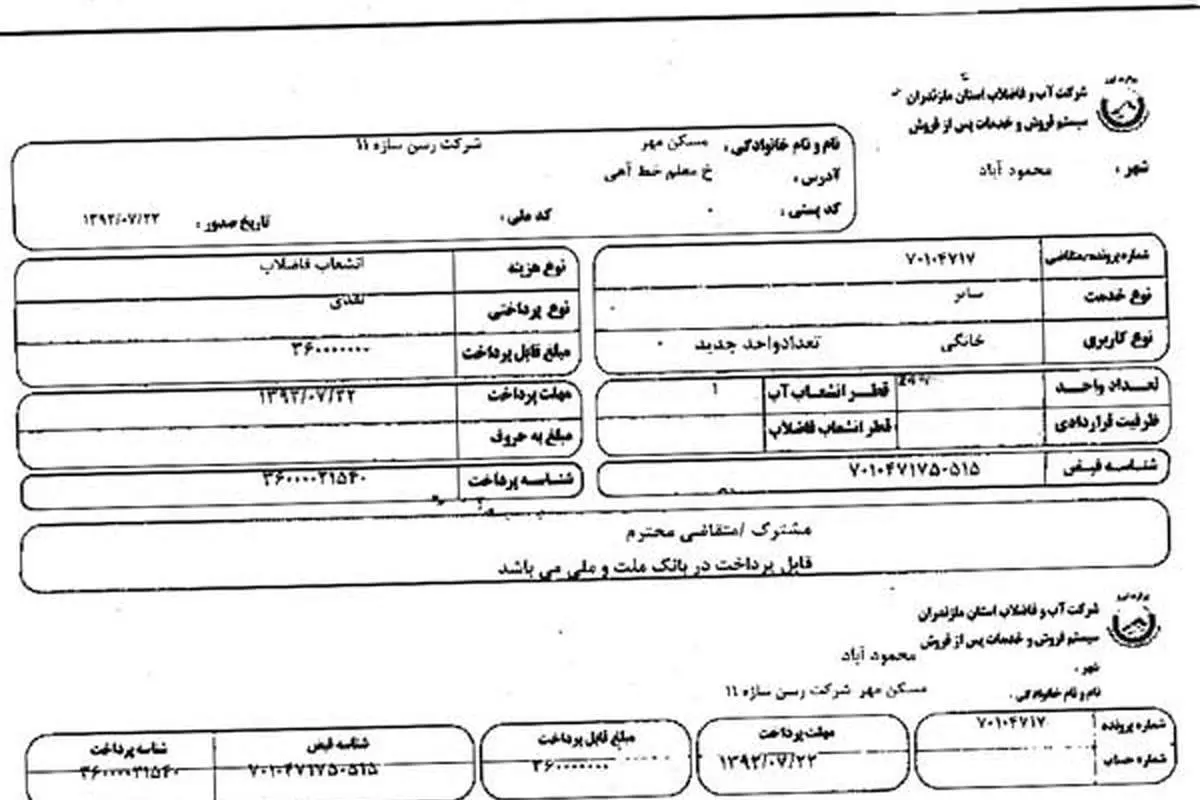 شرکت آب و فاضلاب استان مازندران
سیستم فروش و خدمات پس از فروش
شهر : محمود آباد
نام و نام خانوادگی : مسکن مهر شرکت رسن سازه ۱۱
آدرس : خ معلم خط آهی
کد پستی : ۰ کد ملی : تاریخ صدور : ۱۳۹۲/۰۷/۲۲
شماره پرونده/متقاضی ۷۰۱۰۴۷۱۷
نوع خدمت سایر
نوع کاربری خانگی تعدادواحد جدید ۰
تعداد واحد قطر انشعاب آب ۱
ظرفیت قراردادی قطر انشعاب فاضلاب
شناسه قبض ۷۰۱۰۴۷۱۷۵۰۵۱۵
نوع هزینه انشعاب فاضلاب
نوع پرداختی نقدی
مبلغ قابل پرداخت ۳۶۰۰۰۰۰۰۰
مهلت پرداخت ۱۳۹۲/۰۷/۲۲
مبلغ به حروف
شناسه پرداخت ۳۶۰۰۰۰۲۱۵۴۰
مشترک /متقاضی محترم
قابل پرداخت در بانک ملت و ملی می باشد
شرکت آب و فاضلاب استان مازندران
سیستم فروش و خدمات پس از فروش
شهر : محمود آباد
نام و نام خانوادگی : مسکن مهر شرکت رسن سازه ۱۱
شماره پرونده ۷۰۱۰۴۷۱۷
شماره حساب
مهلت پرداخت
۱۳۹۲/۰۷/۲۲
مبلغ قابل پرداخت
۳۶۰۰۰۰۰۰۰
شناسه قبض
۷۰۱۰۴۷۱۷۵۰۵۱۵
شناسه پرداخت
۳۶۰۰۰۰۲۱۵۴۰